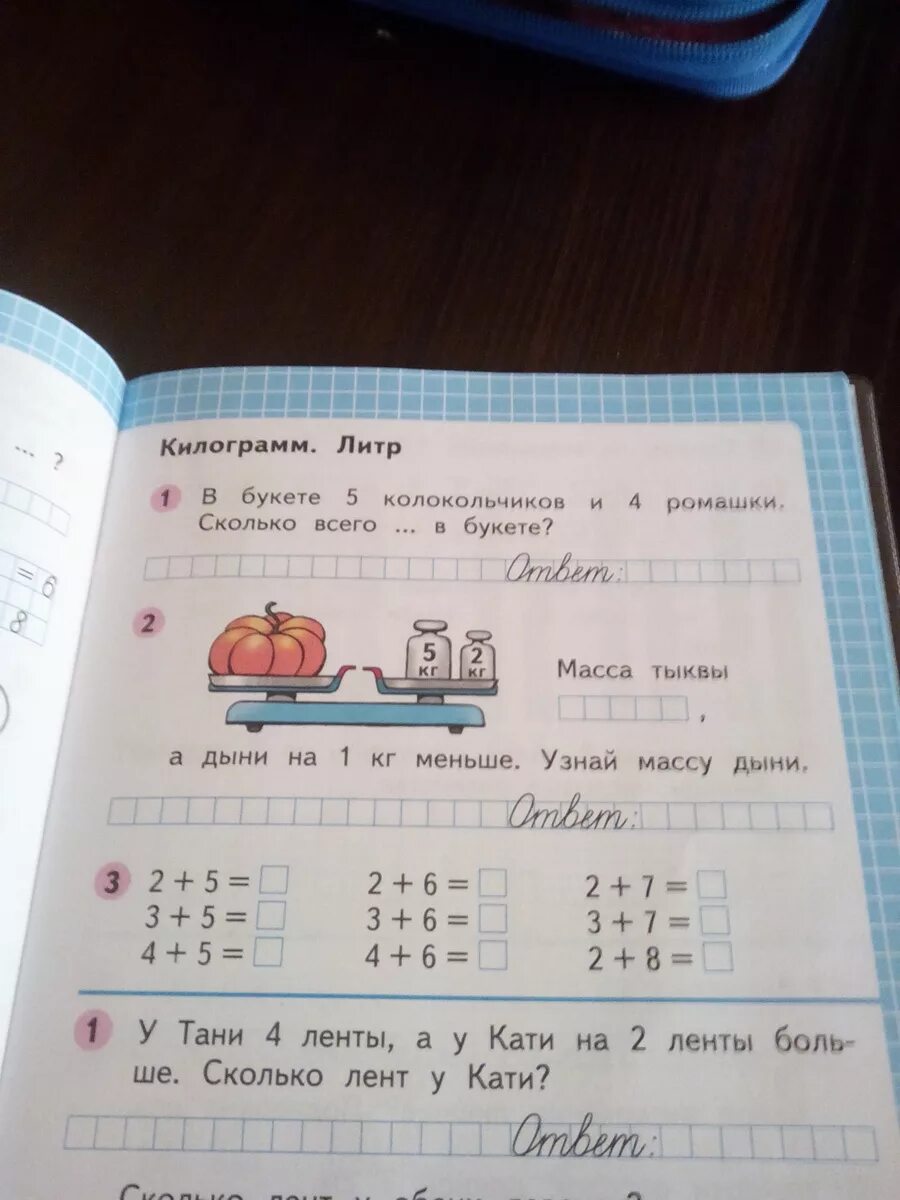 ... ?
= 6
8
Килограмм. Литр
1 В букете 5 колокольчиков и 4 ромашки.
Сколько всего ... в букете?
Ответ:
2
5 кг 2 кг
Масса тыквы
,
а дыни на 1 кг меньше. Узнай массу дыни.
Ответ:
3 2 + 5 = 2 + 6 = 2 + 7 =
3 + 5 = 3 + 6 = 3 + 7 =
4 + 5 = 4 + 6 = 2 + 8 =
1 У Тани 4 ленты, а у Кати на 2 ленты боль-
ше. Сколько лент у Кати?
Ответ:
Сколько лент у